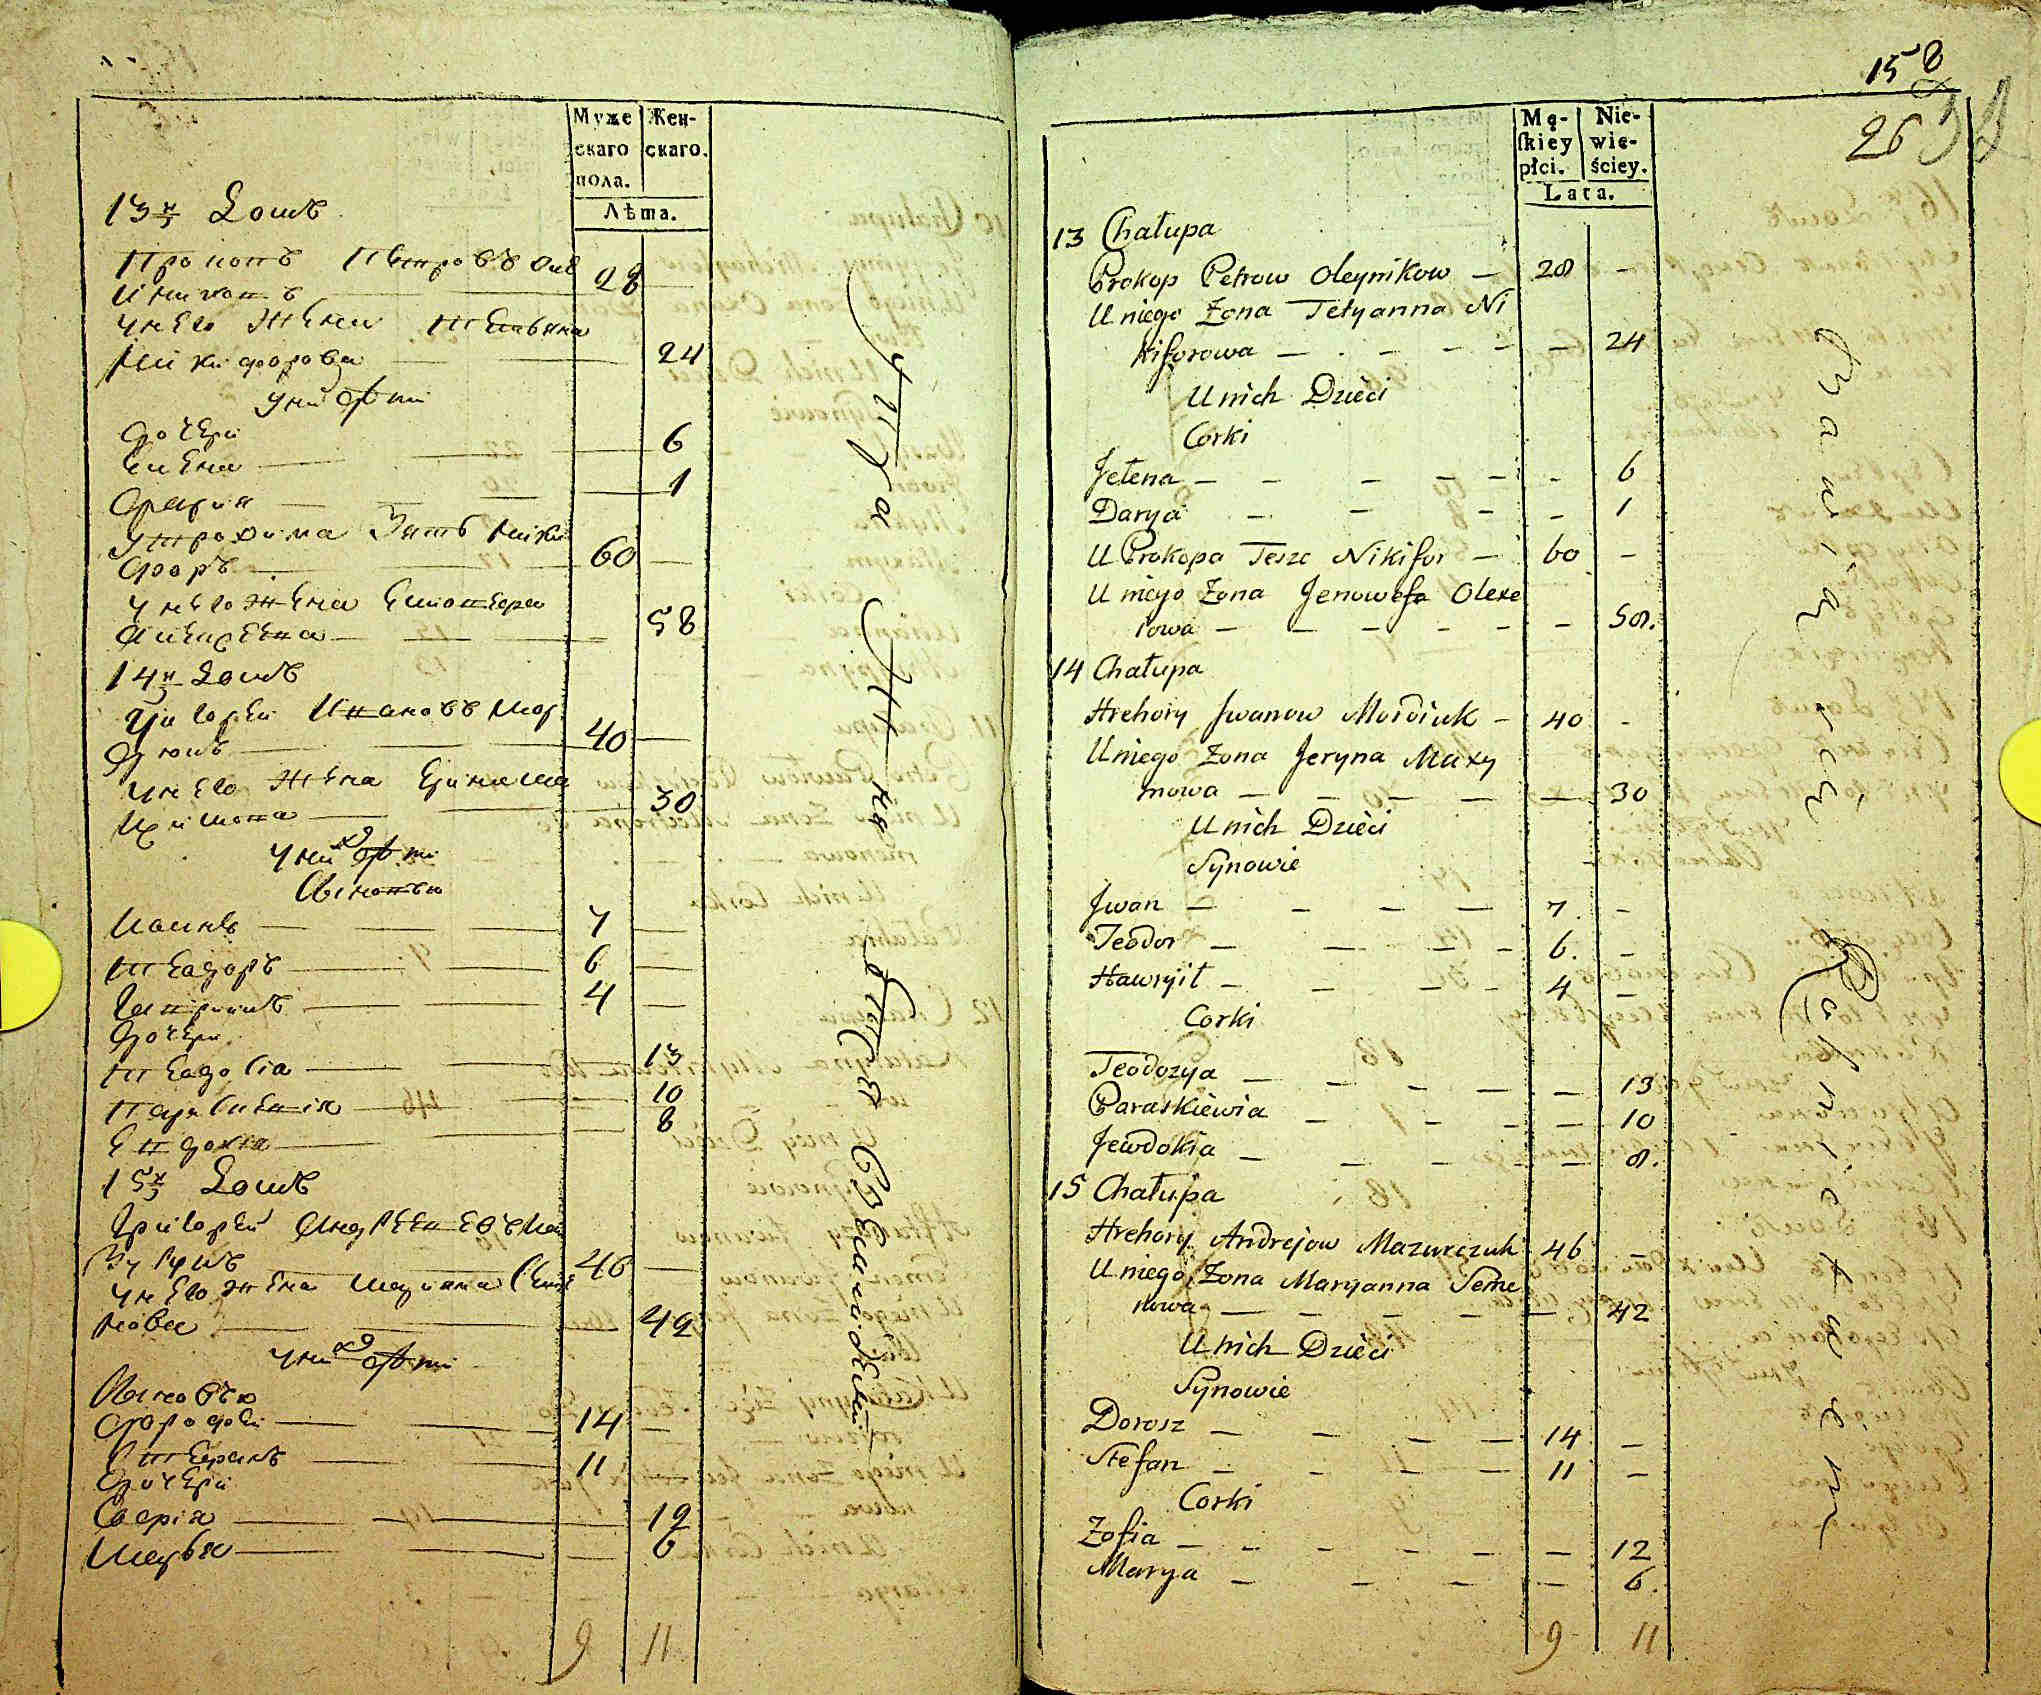 Муже
скаго
пола.
Жен-
скаго.
Лѣта.
13й Домъ
Прокопъ Петровъ Олѣ
йниковъ 28
унего Жена Татьяна
Никифорова 24
уних дѣти
дочери
Елена 6
Дарія 1
Зять Ники
форъ 60
унего жена
Алексѣева 58
14й Домъ
Григорей Ивановъ Мор
дюкъ 40
унего Жена Ирина Ма
ксимова 30
уних дѣти
Сыновья
Иванъ 7
Теодоръ 6
Гаврилъ 4
дочери
Теодосіа 13
Параскевія 10
Евдокія 8
15й Домъ
Григорей Андреевъ Ма
зурчукъ 46
унего жена Маріана Семе
нова 42
уних дѣти
Сыновья
Дорофей 14
Стефанъ 11
дочери
Софія 12
Марья 6
9 11
158
26
Mę-
skiey
płci.
Nie-
wie-
ściey.
Lata.
13 Chałupa
Prokop Petrow Oleynikow 28
U niego Zona Tetyanna Ni
kiforowa 24
U nich Dzieci
Corki
Jełena 6
Darya 1
U Prokopa Teszc Nikifor 60
U niego Zona Jenowefa Olexe
iowa 58.
14 Chałupa
Hrehory Jwanow Mordiuk 40
U niego Zona Jeryna Maxy
mowa 30
U nich Dzieci
Synowie
Jwan 7.
Teodor 6.
Hawryił 4
Corki
Teodozya 13
Paraskiewia 10
Jewdokia 8.
15 Chałupa
Hrehory Andrejow Mazurczuk 46
U niego Zona Maryanna Seme
nowa 42
U nich Dzieci
Synowie
Dorosz 14
Stefan 11
Corki
Zofia 12
Marya 6.
9 11